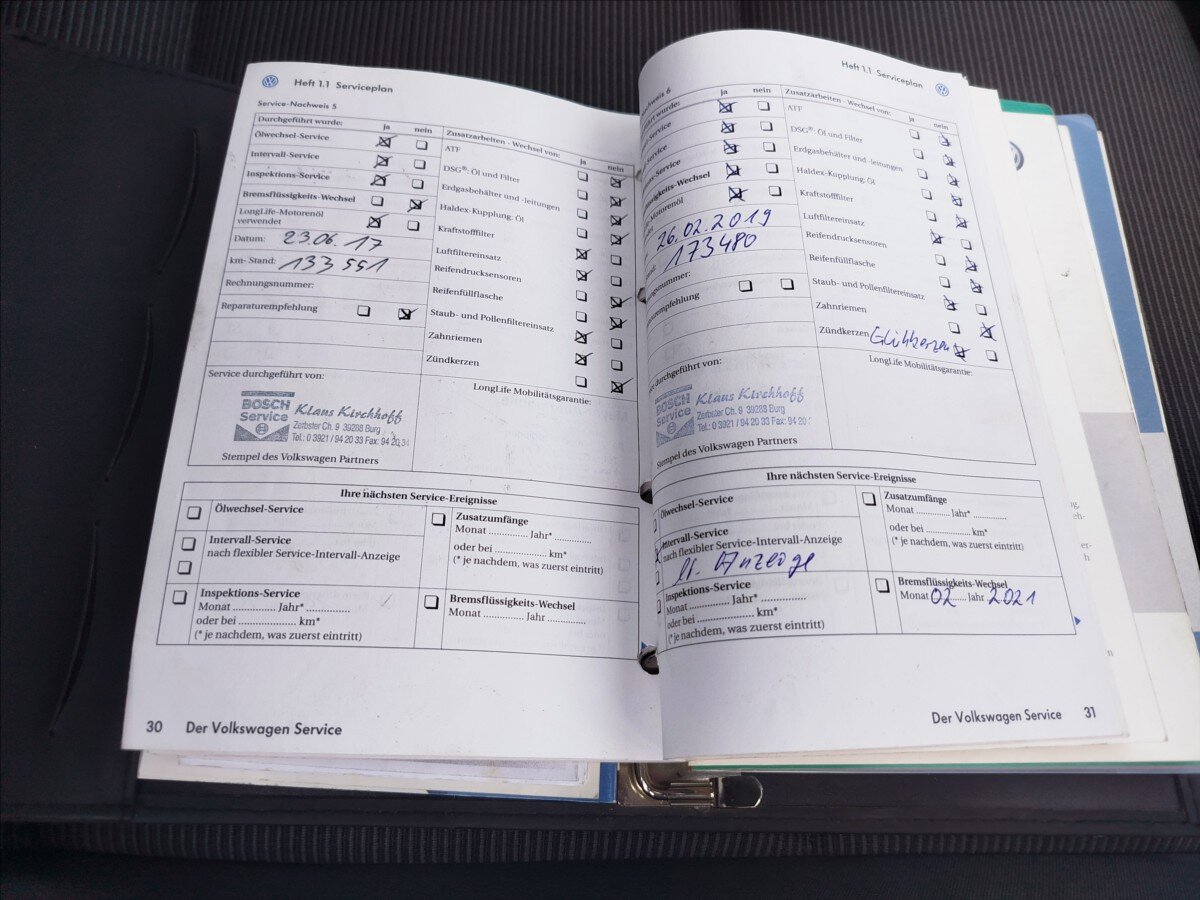 Heft 1.1 Serviceplan
Service-Nachweis 5
Durchgeführt wurde: ja nein
Ölwechsel-Service
Intervall-Service
Inspektions-Service
Bremsflüssigkeits-Wechsel
LongLife-Motorenöl
verwendet
Datum: 23.06.17
km- Stand: 133 551
Rechnungsnummer:
Reparaturempfehlung
Zusatzarbeiten - Wechsel von: ja nein
ATF
DSG®: Öl und Filter
Erdgasbehälter und -leitungen
Haldex-Kupplung: Öl
Kraftstofffilter
Luftfiltereinsatz
Reifendrucksensoren
Reifenfüllflasche
Staub- und Pollenfiltereinsatz
Zahnriemen
Zündkerzen
Service durchgeführt von:
BOSCH
Service
Klaus Kirchhoff
Zerbster Ch. 9 39288 Burg
Tel.: 0 3921 / 94 20 33 Fax: 94 20 34
Stempel des Volkswagen Partners
LongLife Mobilitätsgarantie:
Ihre nächsten Service-Ereignisse
Ölwechsel-Service
Intervall-Service
nach flexibler Service-Intervall-Anzeige
Inspektions-Service
Monat ............... Jahr* ...............
oder bei ............... km*
(* je nachdem, was zuerst eintritt)
Zusatzumfänge
Monat ............ Jahr* ............
oder bei ............... km*
(* je nachdem, was zuerst eintritt)
Bremsflüssigkeits-Wechsel
Monat ............ Jahr ............
30 Der Volkswagen Service
Heft 1.1 Serviceplan
nachweis 6
führt wurde: ja nein
-Service
-Service
ns-Service
ssigkeits-Wechsel
Motorenöl
26.02.2019
173480
ngsnummer:
raturempfehlung
Zusatzarbeiten - Wechsel von: ja nein
ATF
DSG®: Öl und Filter
Erdgasbehälter und -leitungen
Haldex-Kupplung: Öl
Kraftstofffilter
Luftfiltereinsatz
Reifendrucksensoren
Reifenfüllflasche
Staub- und Pollenfiltereinsatz
Zahnriemen
Zündkerzen Glühkerzen
durchgeführt von:
BOSCH
Service
Klaus Kirchhoff
Zerbster Ch. 9 39288 Burg
Tel.: 0 3921 / 94 20 33 Fax: 94 20
Stempel des Volkswagen Partners
LongLife Mobilitätsgarantie:
Ihre nächsten Service-Ereignisse
Ölwechsel-Service
Intervall-Service
nach flexibler Service-Intervall-Anzeige
Anzeige
Inspektions-Service
Monat ............... Jahr* ...............
oder bei ............... km*
(* je nachdem, was zuerst eintritt)
Zusatzumfänge
Monat ............ Jahr* ............
oder bei ............... km*
(* je nachdem, was zuerst eintritt)
Bremsflüssigkeits-Wechsel
Monat 02 Jahr 2021
Der Volkswagen Service 31